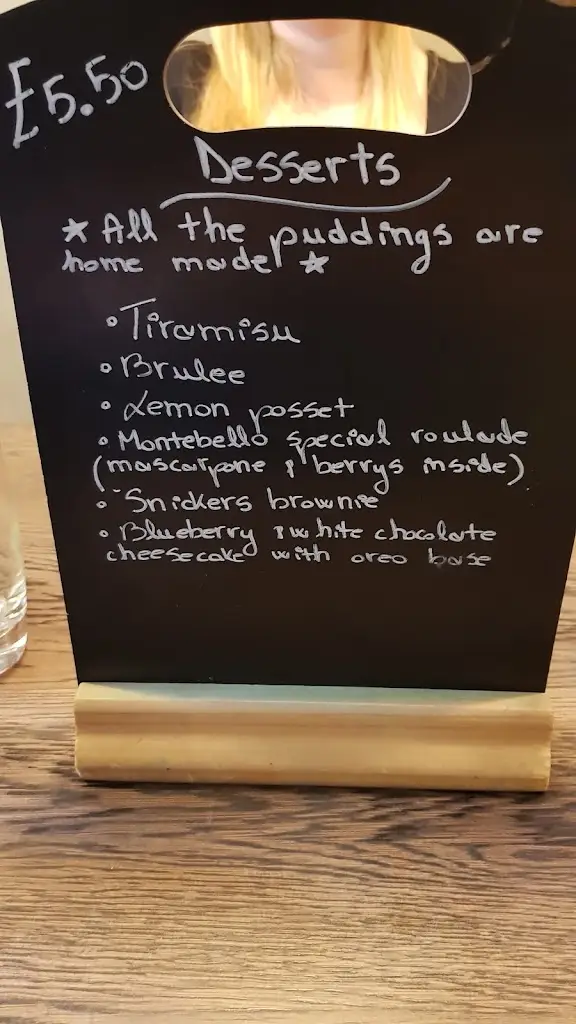 £5.50
Desserts
★ All the puddings are
home made! ★
• Tiramisu
• Brulee
• Lemon posset
• Montebello special roulade
(mascarpone & berrys inside)
• Snickers brownie
• Blueberry & white chocolate
cheesecake with oreo base